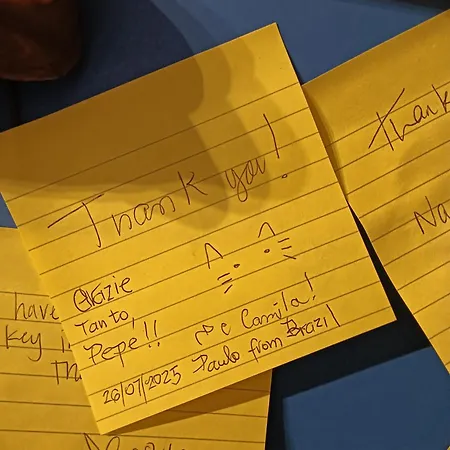 Thank you!
GRAZIE
Tanto,
Pepe!!
De Camila!
Paulo from Brazil
26/07/2025
Thank
Na
have
key
Th